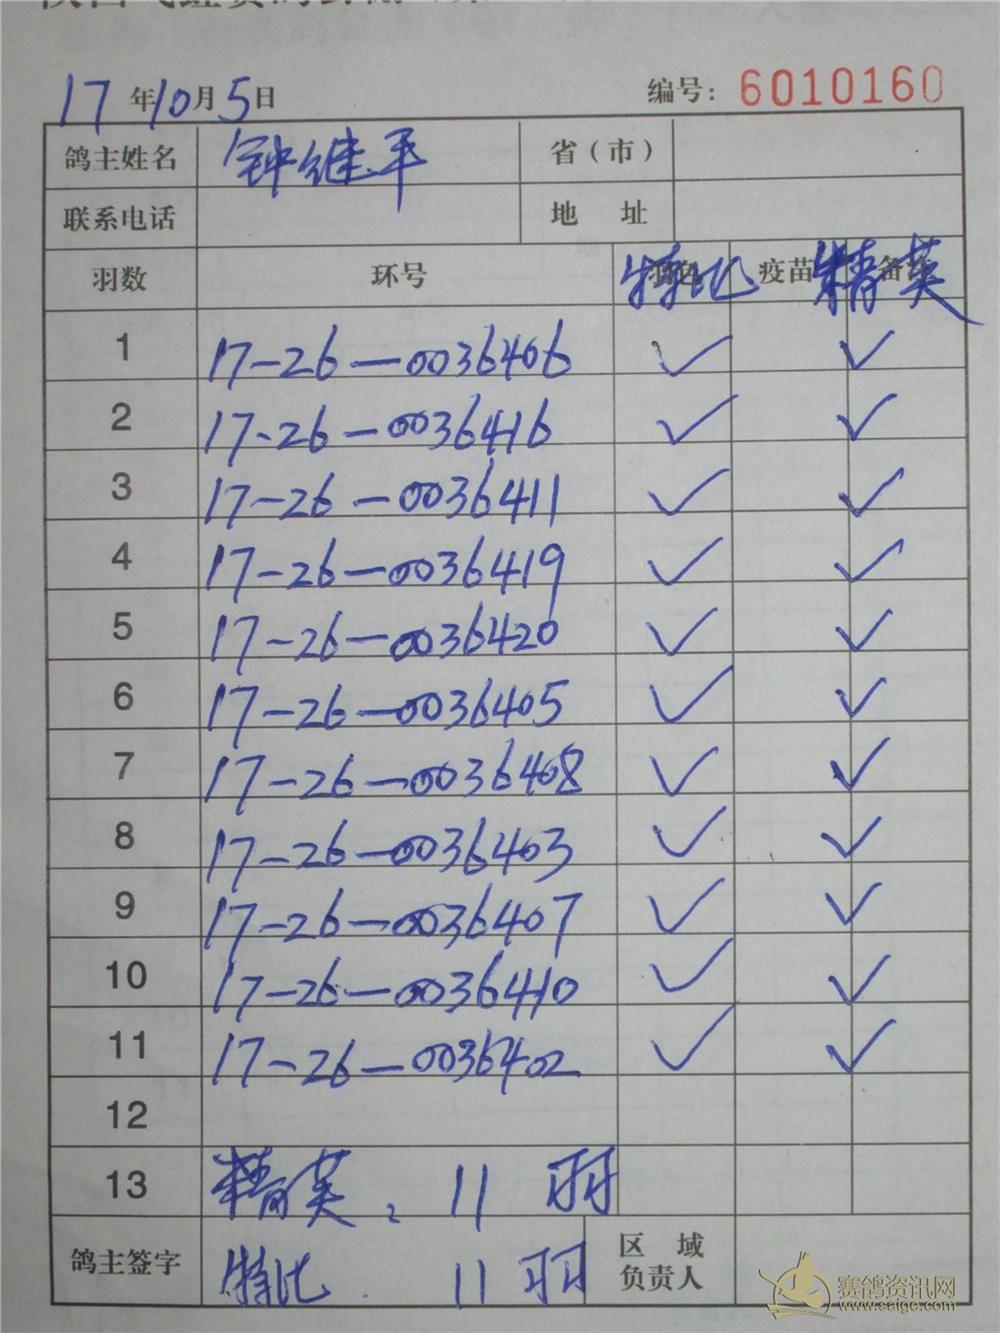 17年10月5日 编号: 6010160
鸽主姓名 钟继平 省(市)
联系电话 地 址
羽数 环号 特比 疫苗 精英
1 17-26-0036406 ✓ ✓
2 17-26-0036416 ✓ ✓
3 17-26-0036411 ✓ ✓
4 17-26-0036419 ✓ ✓
5 17-26-0036420 ✓ ✓
6 17-26-0036405 ✓ ✓
7 17-26-0036408 ✓ ✓
8 17-26-0036403 ✓ ✓
9 17-26-0036407 ✓ ✓
10 17-26-0036410 ✓ ✓
11 17-26-0036402 ✓ ✓
12
13 精英、11羽
鸽主签字 特比. 11羽 区 域
负责人
赛鸽资讯网
www.saige.com